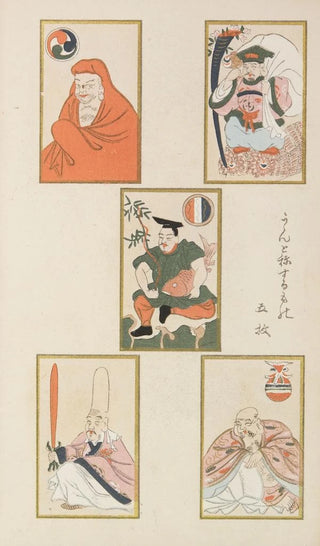 うんと称するもの
五枚